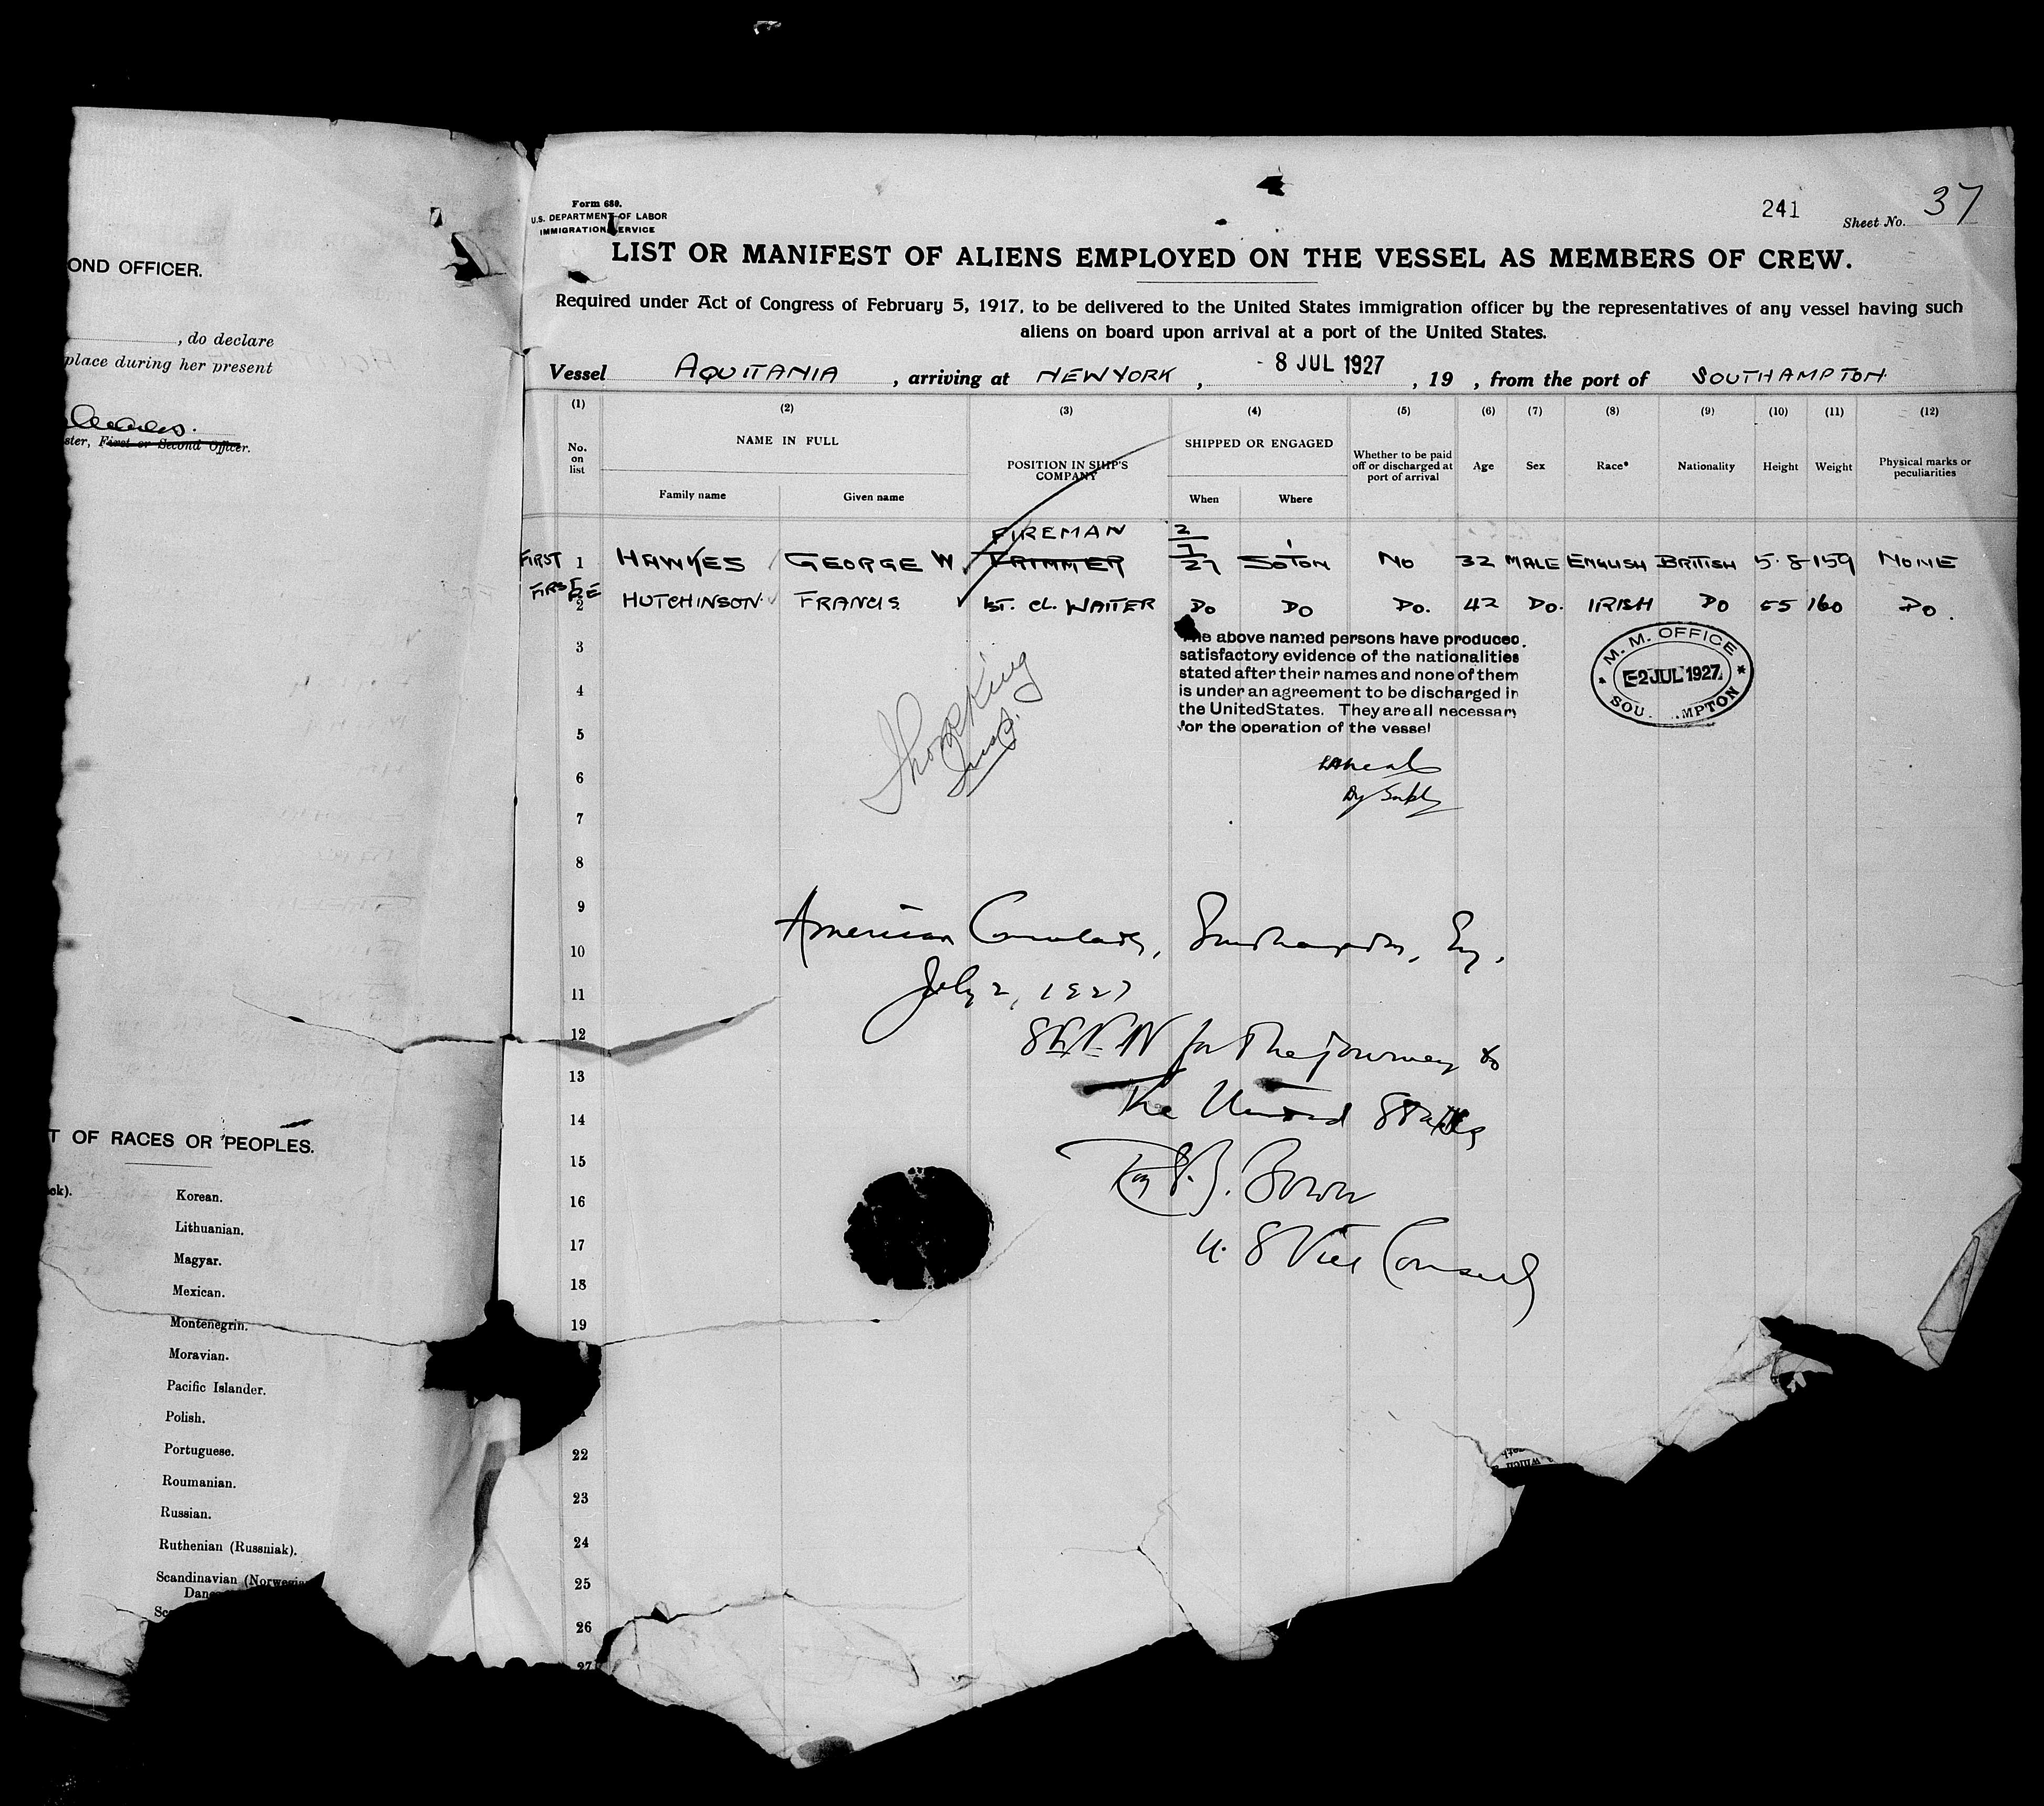 OND OFFICER.
, do declare
place during her present
ster, First or Second Officer.
T OF RACES OR PEOPLES.
ok).
Korean.
Lithuanian.
Magyar.
Mexican.
Montenegrin.
Moravian.
Pacific Islander.
Polish.
Portuguese.
Roumanian.
Russian.
Ruthenian (Russniak).
Scandinavian (Norwegia
Dan
Sc
Form 680.
U.S. DEPARTMENT OF LABOR
IMMIGRATION SERVICE
241
Sheet No. 37
LIST OR MANIFEST OF ALIENS EMPLOYED ON THE VESSEL AS MEMBERS OF CREW.
Required under Act of Congress of February 5, 1917, to be delivered to the United States immigration officer by the representatives of any vessel having such
aliens on board upon arrival at a port of the United States.
Vessel AQUITANIA, arriving at NEW YORK, 8 JUL 1927, 19 , from the port of SOUTHAMPTON
(1) (2) (3) (4) (5) (6) (7) (8) (9) (10) (11) (12)
No. on list NAME IN FULL Family name Given name POSITION IN SHIP'S COMPANY SHIPPED OR ENGAGED When Where Whether to be paid off or discharged at port of arrival Age Sex Race* Nationality Height Weight Physical marks or peculiarities
FIREMAN
FIRST 1 HAWKES GEORGE W TRIMMER 2/7/27 SOTON NO 32 MALE ENGLISH BRITISH 5.8 159 NONE
FIRST 2 HUTCHINSON FRANCIS 1ST. CL. WAITER DO DO DO. 42 DO. IRISH DO 55 160 DO.
3
4
5
6
7
8
9
10
11
12
13
14
15
16
17
18
19
22
23
24
25
26
27
The above named persons have produced
satisfactory evidence of the nationalities
stated after their names and none of them
is under an agreement to be discharged in
the United States. They are all necessary
for the operation of the vessel
M. M. OFFICE
2 JUL 1927
SOU MPTON
American Consulate, Southampton, Eng.
July 2, 1927
SEEN for the journey to
the United States
U. S Vice Consul